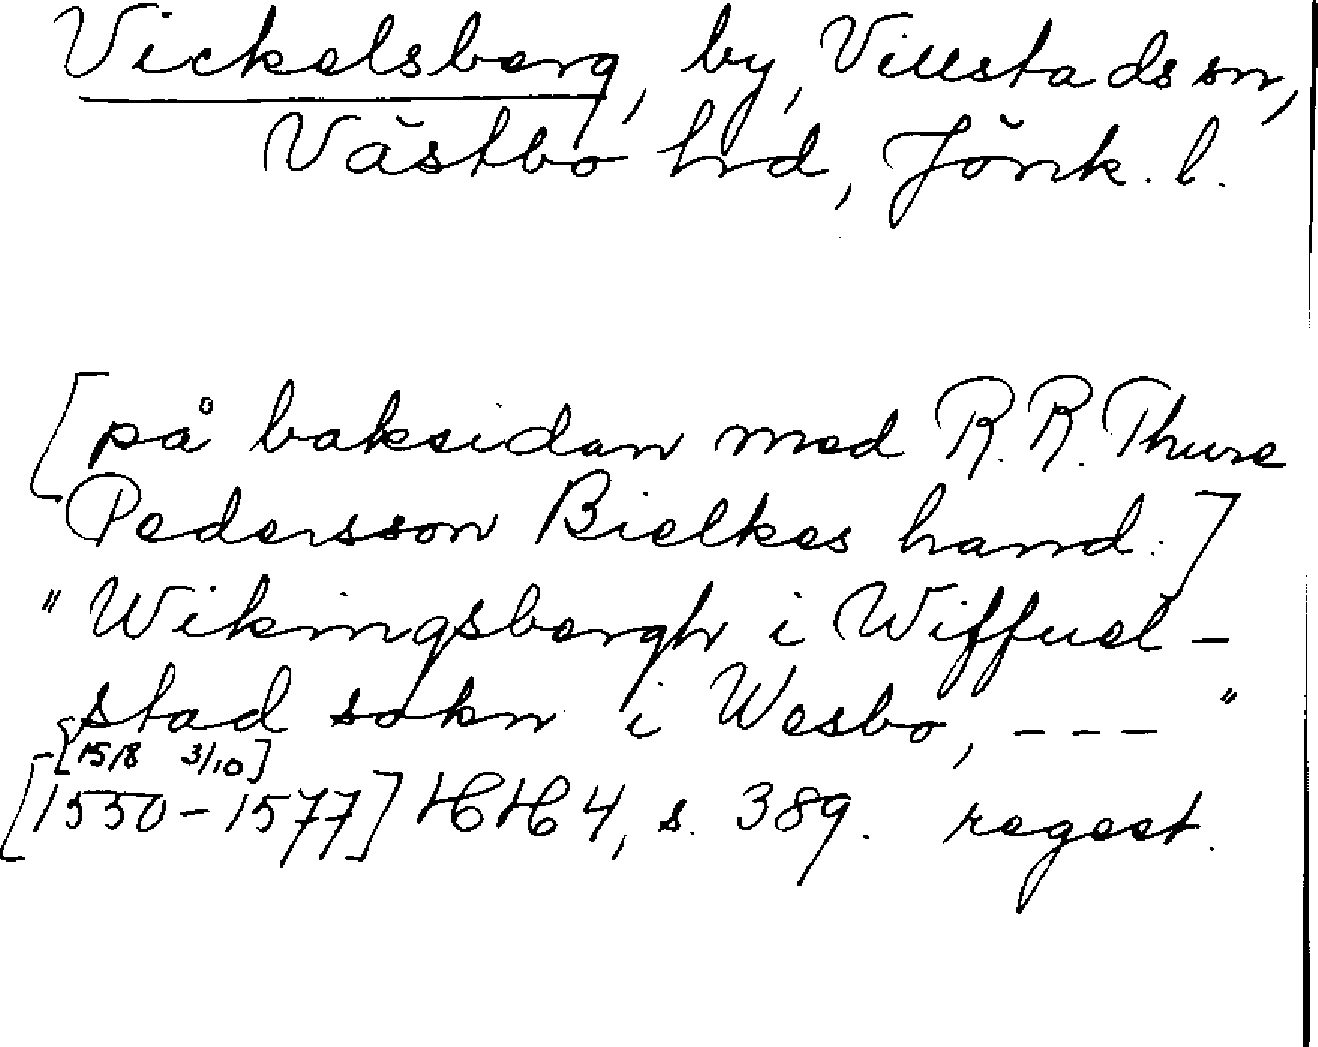 Vickelsberg, by, Villstads sn,
Västbo hrd, Jönk. l.
[på baksidan med R.R. Thure
Pedersson Bielkes hand:]
"Wikingsbergh i Wiffuel-
stad sokn i Wesbo, ---"
-[15/8 3/10]
[1550-1577] HH 4, s. 389. regest.